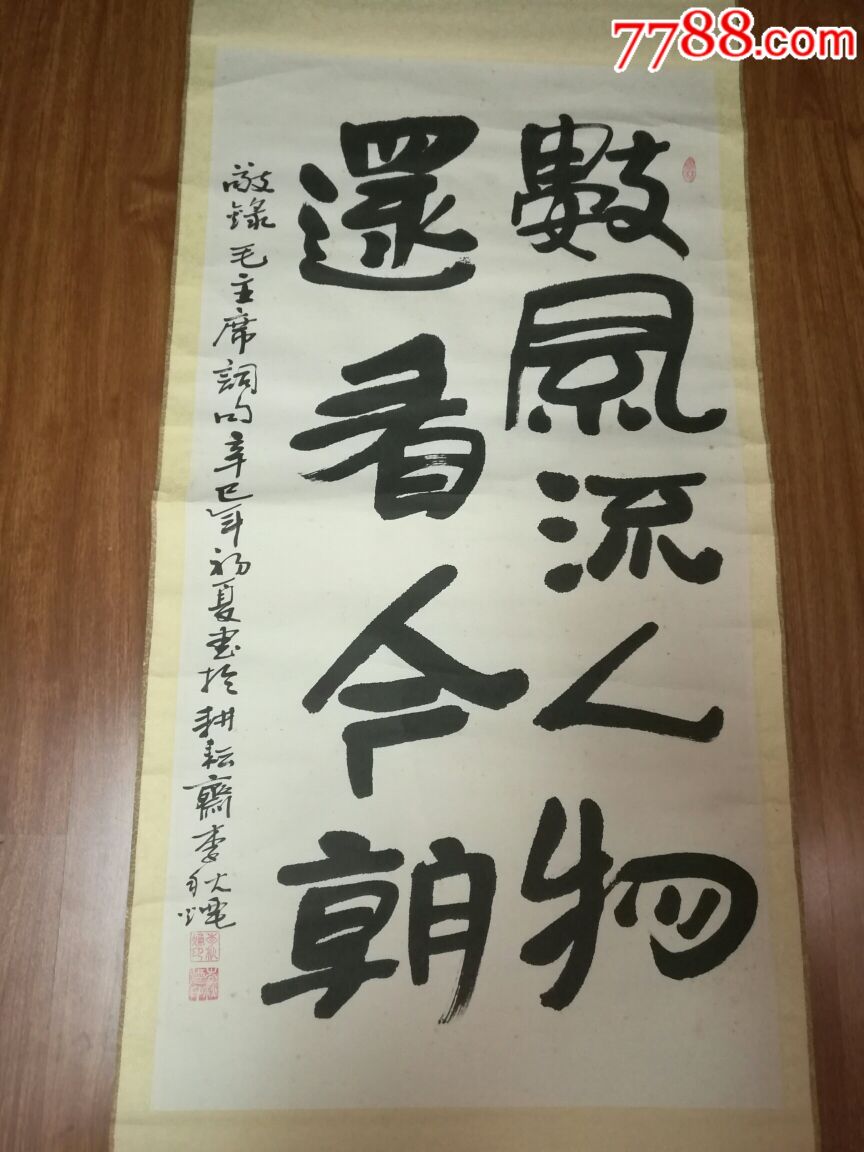 7788.com
數風流人物
還看今朝
敬錄毛主席詞句辛巳年初夏書於耕耘齋李秋